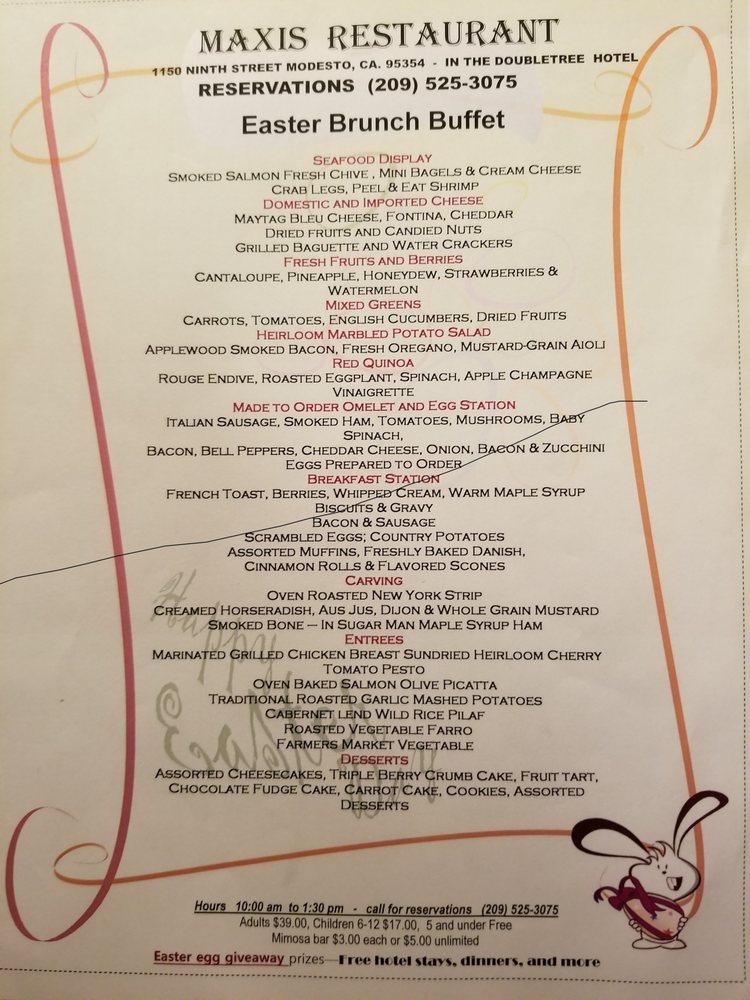 MAXIS RESTAURANT
1150 NINTH STREET MODESTO, CA. 95354 - IN THE DOUBLETREE HOTEL
RESERVATIONS (209) 525-3075
Easter Brunch Buffet
SEAFOOD DISPLAY
SMOKED SALMON FRESH CHIVE , MINI BAGELS & CREAM CHEESE
CRAB LEGS, PEEL & EAT SHRIMP
DOMESTIC AND IMPORTED CHEESE
MAYTAG BLEU CHEESE, FONTINA, CHEDDAR
DRIED FRUITS AND CANDIED NUTS
GRILLED BAGUETTE AND WATER CRACKERS
FRESH FRUITS AND BERRIES
CANTALOUPE, PINEAPPLE, HONEYDEW, STRAWBERRIES &
WATERMELON
MIXED GREENS
CARROTS, TOMATOES, ENGLISH CUCUMBERS, DRIED FRUITS
HEIRLOOM MARBLED POTATO SALAD
APPLEWOOD SMOKED BACON, FRESH OREGANO, MUSTARD-GRAIN AIOLI
RED QUINOA
ROUGE ENDIVE, ROASTED EGGPLANT, SPINACH, APPLE CHAMPAGNE
VINAIGRETTE
MADE TO ORDER OMELET AND EGG STATION
ITALIAN SAUSAGE, SMOKED HAM, TOMATOES, MUSHROOMS, BABY
SPINACH,
BACON, BELL PEPPERS, CHEDDAR CHEESE, ONION, BACON & ZUCCHINI
EGGS PREPARED TO ORDER
BREAKFAST STATION
FRENCH TOAST, BERRIES, WHIPPED CREAM, WARM MAPLE SYRUP
BISCUITS & GRAVY
BACON & SAUSAGE
SCRAMBLED EGGS; COUNTRY POTATOES
ASSORTED MUFFINS, FRESHLY BAKED DANISH,
CINNAMON ROLLS & FLAVORED SCONES
CARVING
OVEN ROASTED NEW YORK STRIP
CREAMED HORSERADISH, AUS JUS, DIJON & WHOLE GRAIN MUSTARD
SMOKED BONE – IN SUGAR MAN MAPLE SYRUP HAM
ENTREES
MARINATED GRILLED CHICKEN BREAST SUNDRIED HEIRLOOM CHERRY
TOMATO PESTO
OVEN BAKED SALMON OLIVE PICATTA
TRADITIONAL ROASTED GARLIC MASHED POTATOES
CABERNET LEND WILD RICE PILAF
ROASTED VEGETABLE FARRO
FARMERS MARKET VEGETABLE
DESSERTS
ASSORTED CHEESECAKES, TRIPLE BERRY CRUMB CAKE, FRUIT TART,
CHOCOLATE FUDGE CAKE, CARROT CAKE, COOKIES, ASSORTED
DESSERTS
Hours 10:00 am to 1:30 pm - call for reservations (209) 525-3075
Adults $39.00, Children 6-12 $17.00, 5 and under Free
Mimosa bar $3.00 each or $5.00 unlimited
Easter egg giveaway prizes—Free hotel stays, dinners, and more